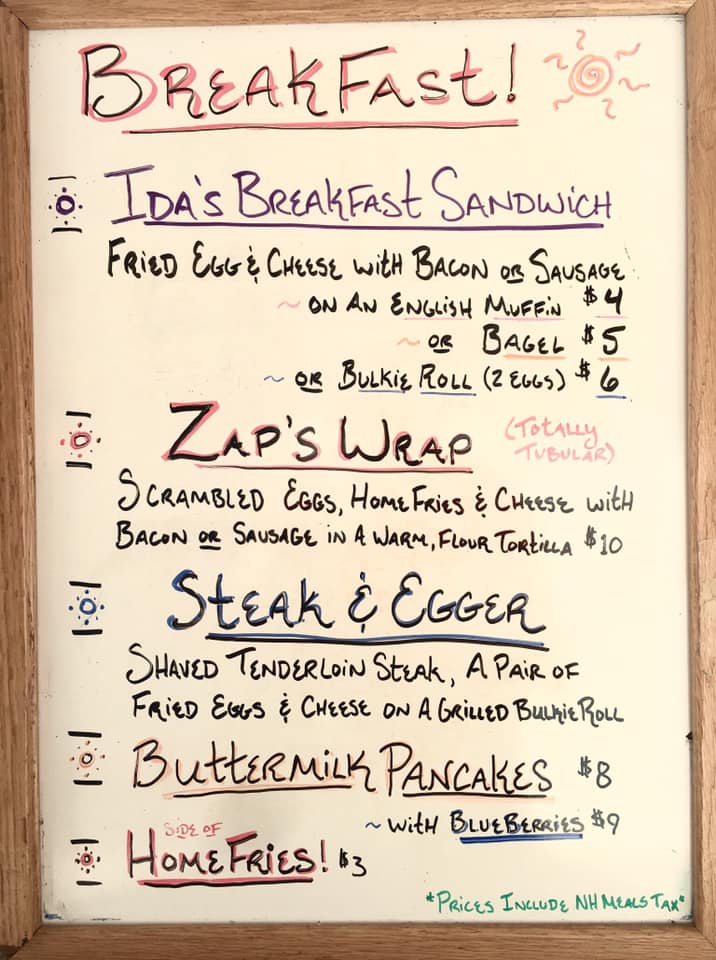 BREAKFAST!
IDA'S BREAKFAST SANDWICH
FRIED EGG & CHEESE WITH BACON OR SAUSAGE
~ ON AN ENGLISH MUFFIN $4
~ OR BAGEL $5
~ OR BULKIE ROLL (2 EGGS) $6
ZAP'S WRAP (TOTALLY
TUBULAR)
SCRAMBLED EGGS, HOMEFRIES & CHEESE WITH
BACON OR SAUSAGE IN A WARM, FLOUR TORTILLA $10
STEAK & EGGER
SHAVED TENDERLOIN STEAK, A PAIR OF
FRIED EGGS & CHEESE ON A GRILLED BULKIE ROLL
BUTTERMILK PANCAKES $8
~ WITH BLUEBERRIES $9
SIDE OF
HOMEFRIES! $3
*PRICES INCLUDE NH MEALS TAX*